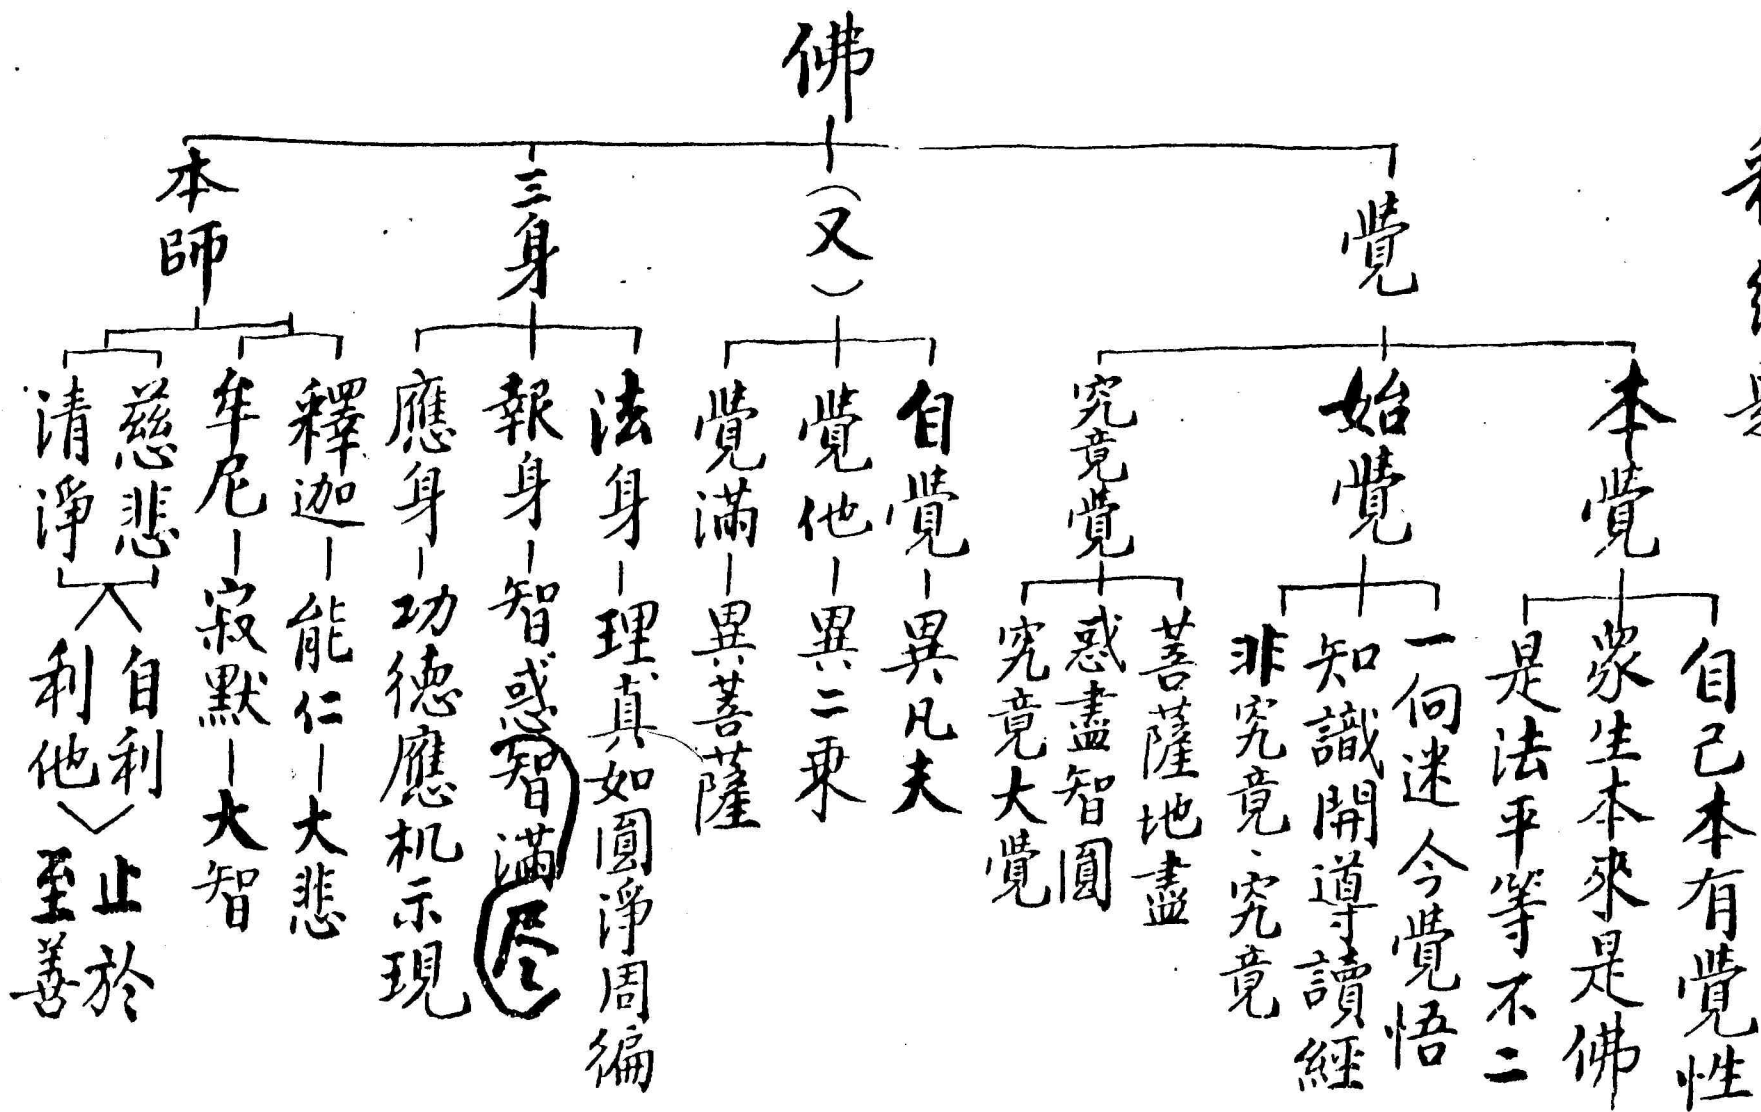 佛
覺
本覺
自己本有覺性
衆生本來是佛
是法平等不二
始覺
一向迷今覺悟
知識開導讀經
非究竟、究竟
究竟覺
菩薩地盡
惑盡智圓
究竟大覺
(又)
自覺—異凡夫
覺他—異二乘
覺滿—異菩薩
三身
法身—理真如圓淨周徧
報身—智惑智滿尽
應身—功德應机示現
本師
釋迦—能仁—大悲
牟尼—寂默—大智
慈悲
清淨
自利
利他
止於
至善